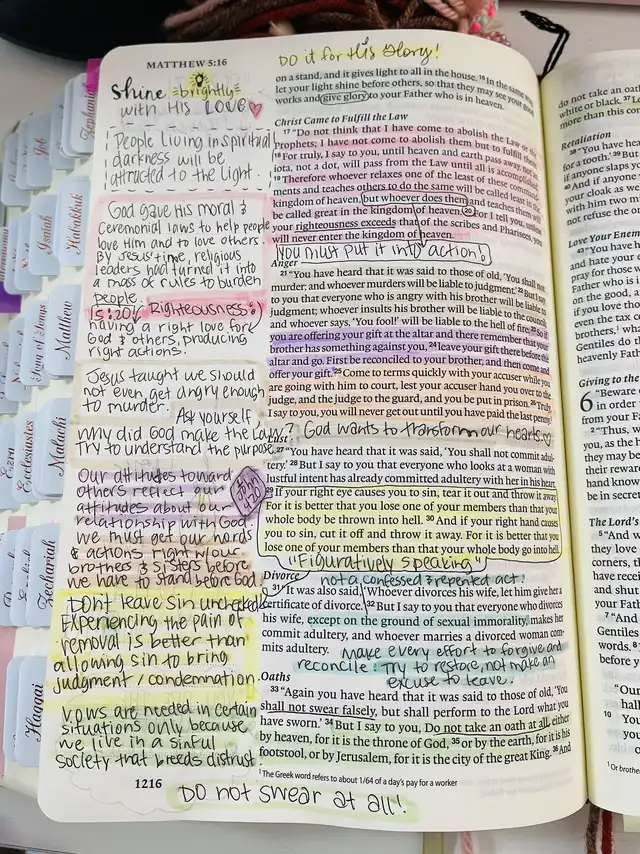 MATTHEW 5:16
Shine brightly
with HIS LOVE
People living in spiritual
darkness will be
attracted to the light.
God gave His moral &
ceremonial laws to help people
love Him and to love others.
By Jesus' time, religious
leaders had turned it into
a mass of rules to burden
people.
Righteousness:
having a right love for
God & others, producing
right actions.
Jesus taught we should
not even get angry enough
to murder.
Ask yourself,
why did God make the Law?
Try to understand the purpose.
Our attitudes toward
others reflect our
attitudes about our
relationship with God.
We must get our words
& actions right w/our
brothers & sisters before
we have to stand before God!
John
4:20
Don't leave sin unchecked!
Experiencing the pain of
removal is better than
allowing sin to bring
judgment/condemnation.
Vows are needed in certain
situations only because
we live in a sinful
society that breeds distrust.
1216
DO NOT SWEAR at all!
DO it for His Glory!
on a stand, and it gives light to all in the house. 16 In the same way,
let your light shine before others, so that they may see your good
works and give glory to your Father who is in heaven.
Christ Came to Fulfill the Law
17 "Do not think that I have come to abolish the Law or the
Prophets; I have not come to abolish them but to fulfill them.
18 For truly, I say to you, until heaven and earth pass away, not an
iota, not a dot, will pass from the Law until all is accomplished.
19 Therefore whoever relaxes one of the least of these command-
ments and teaches others to do the same will be called least in the
kingdom of heaven, but whoever does them and teaches them will
be called great in the kingdom of heaven. 20 For I tell you, unless
your righteousness exceeds that of the scribes and Pharisees, you
will never enter the kingdom of heaven.
You must put it into action!
Anger
21 "You have heard that it was said to those of old, 'You shall not
murder; and whoever murders will be liable to judgment.' 22 But I say
to you that everyone who is angry with his brother will be liable to
judgment; whoever insults his brother will be liable to the council;
and whoever says, 'You fool!' will be liable to the hell of fire. 23 So if
you are offering your gift at the altar and there remember that your
brother has something against you, 24 leave your gift there before the
altar and go. First be reconciled to your brother, and then come and
offer your gift. 25 Come to terms quickly with your accuser while you
are going with him to court, lest your accuser hand you over to the
judge, and the judge to the guard, and you be put in prison. 26 Truly,
I say to you, you will never get out until you have paid the last penny.
God wants to transform our hearts
Lust
27 "You have heard that it was said, 'You shall not commit adul-
tery.' 28 But I say to you that everyone who looks at a woman with
lustful intent has already committed adultery with her in his heart.
29 If your right eye causes you to sin, tear it out and throw it away.
For it is better that you lose one of your members than that your
whole body be thrown into hell. 30 And if your right hand causes
you to sin, cut it off and throw it away. For it is better that you
lose one of your members than that your whole body go into hell.
"Figuratively Speaking"
Divorce
not a confessed & repented act!
31 "It was also said, 'Whoever divorces his wife, let him give her a
certificate of divorce.' 32 But I say to you that everyone who divorces
his wife, except on the ground of sexual immorality, makes her
commit adultery, and whoever marries a divorced woman com-
mits adultery.
Make every effort to forgive and
reconcile! Try to restore, not make an
excuse to leave.
Oaths
33 "Again you have heard that it was said to those of old, 'You
shall not swear falsely, but shall perform to the Lord what you
have sworn.' 34 But I say to you, Do not take an oath at all, either
by heaven, for it is the throne of God, 35 or by the earth, for it is his
footstool, or by Jerusalem, for it is the city of the great King. 36 And
1 The Greek word refers to about 1/64 of a day's pay for a worker
do not take an oath
white or black. 37
more than this com
Retaliation
38 "You have hea
for a tooth.'
if anyone slaps y
your cloak as we
with him two mi
not refuse the o
Love Your Enemi
and hate your
pray for those
Father who is i
on the good,
if you love tho
even the tax c
brothers,
Gentiles do th
heavenly Fath
Giving to the
6 "Beware
in order
from your F
2 "Thus, w
you, as the
they may b
their rewar
hand know
be in secre
The Lord's
they love
corners, th
have recei
and shut
your Fath
7 "And
Gentiles
words. 8
before yo
"Our
10 You
you
1 Or brothe
Zephaniah
Job
Habakkuk
Isaiah
Matthew
Song of Songs
Malachi
Ecclesiastes
Ezra
Zechariah
Haggai